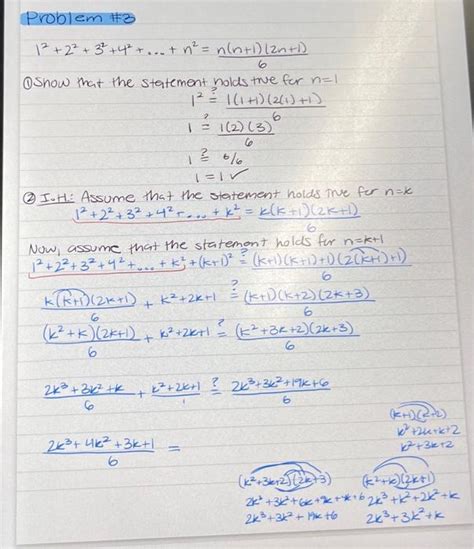 Problem #3
1² + 2² + 3² + 4² + ... + n² = n(n+1)(2n+1) / 6
① Show that the statement holds true for n=1
1² ?= 1(1+1)(2(1)+1) / 6
1 ?= 1(2)(3) / 6
1 ?= 6/6
1 = 1 ✓
② I.H.: Assume that the statement holds true for n=k
1² + 2² + 3² + 4² + ... + k² = k(k+1)(2k+1) / 6
Now, assume that the statement holds for n=k+1
1² + 2² + 3² + 4² + ... + k² + (k+1)² ?= (k+1)(k+1)+1)(2(k+1)+1) / 6
k(k+1)(2k+1) / 6 + k²+2k+1 ?= (k+1)(k+2)(2k+3) / 6
(k²+k)(2k+1) / 6 + k²+2k+1 ?= (k²+3k+2)(2k+3) / 6
2k³+3k²+k / 6 + k²+2k+1 / 1 ?= 2k³+3k²+19k+6 / 6
2k³+4k²+3k+1 / 6 =
k²+2k+k+2
k²+3k+2
(k²+3k+2)(2k+3)
2k³+3k²+19k+6
(k²+k)(2k+1)
2k³+k²+2k²+k
2k³+3k²+k